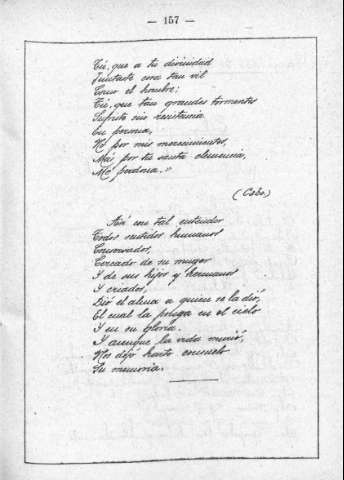 — 157 —
Tú, que a tu divinidad
Juntaste cosa tan vil
Como el hombre;
Tú, que tan grandes tormentos
Sufriste sin resistencia
En tu persona,
No por mis merecimientos,
Mas por tu santa clemencia,
Me perdona."
(Cabo.)
Así con tal entender
Todos sentidos humanos
Conservados,
Cercado de su mujer
I de sus hijos y hermanos
I criados,
Dió el alma a quien se la dió,
El cual la ponga en el cielo
I en su gloria.
I aunque la vida murió,
Nos dejó harto consuelo
Su memoria.